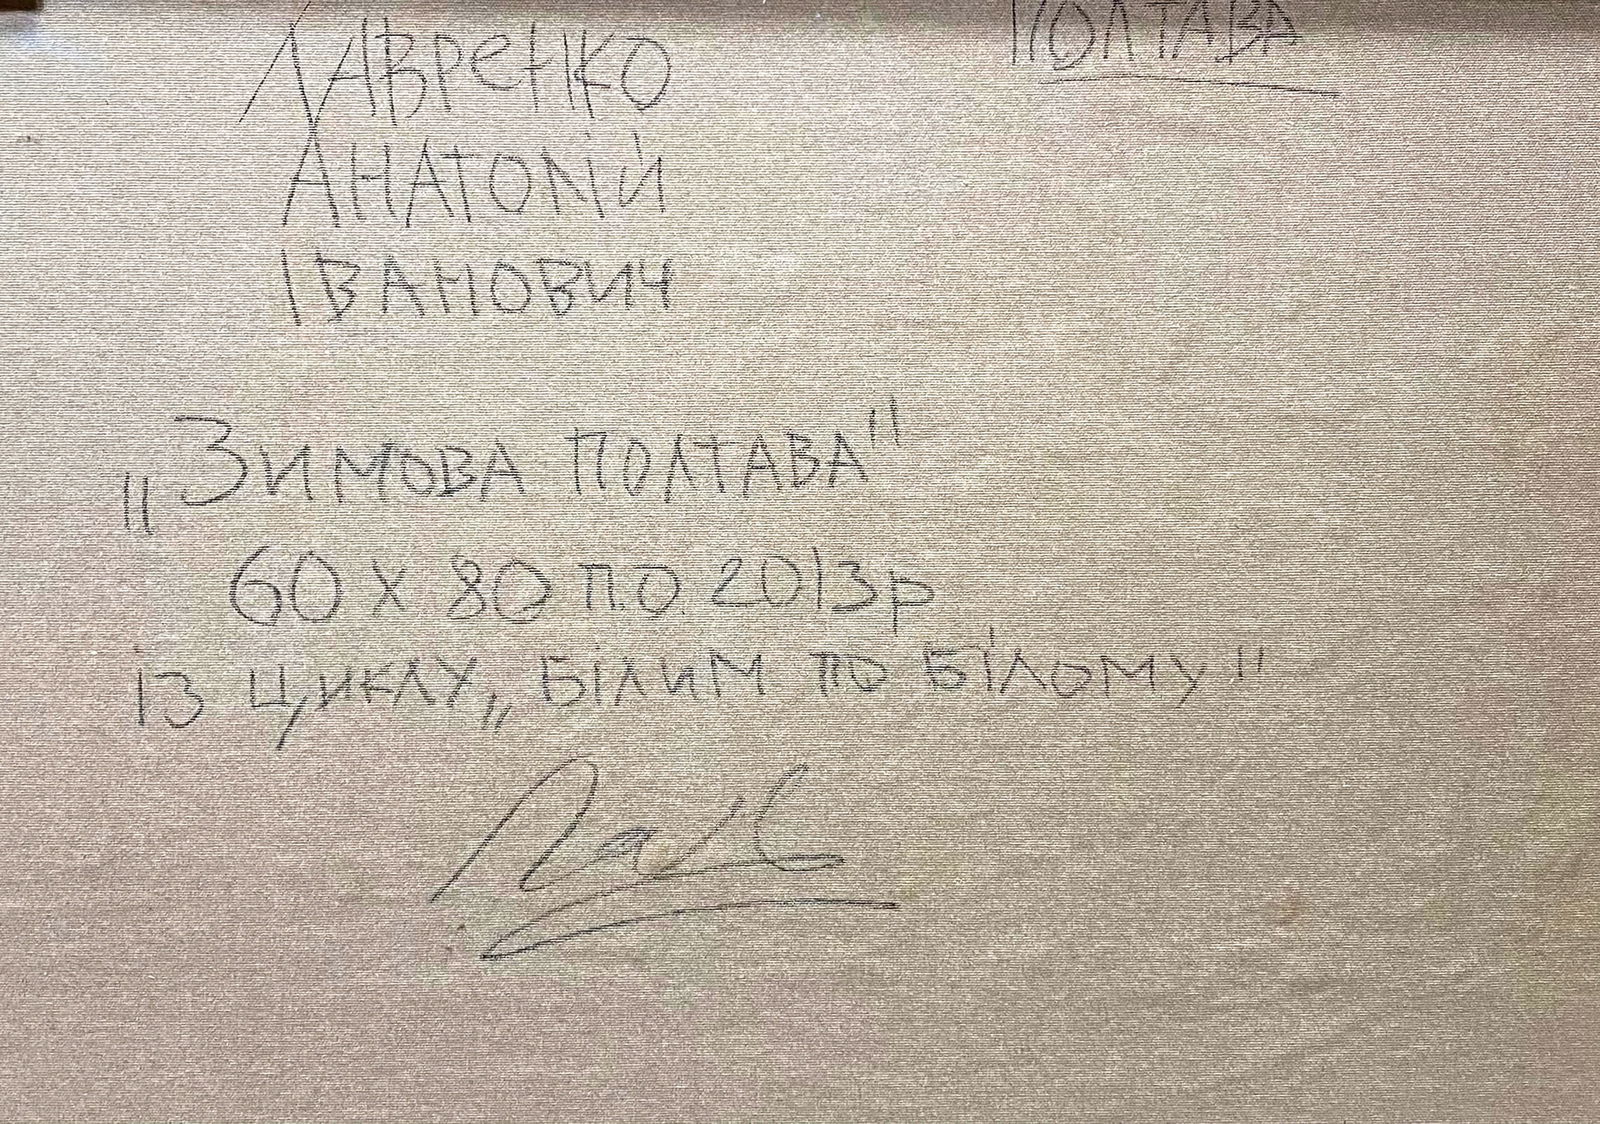 ЛАВРЕНКО
ПОЛТАВА
АНАТОЛІЙ
ІВАНОВИЧ
„ЗИМОВА ПОЛТАВА"
60 х 80 п.о. 2013р
ІЗ ЦИКЛУ „БІЛИМ ПО БІЛОМУ"